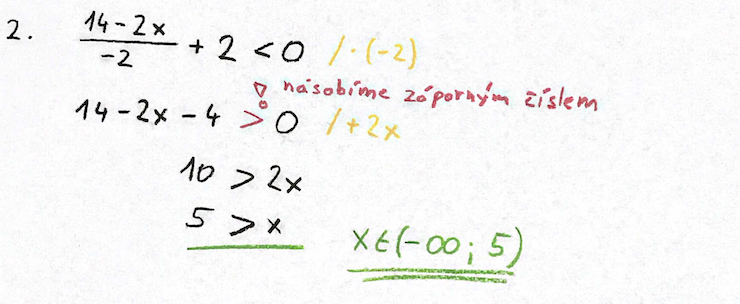 2. (14-2x)/(-2) + 2 < 0 / · (-2)
násobíme záporným číslem
14-2x-4 > 0 / +2x
10 > 2x
5 > x
x∈(-∞; 5)